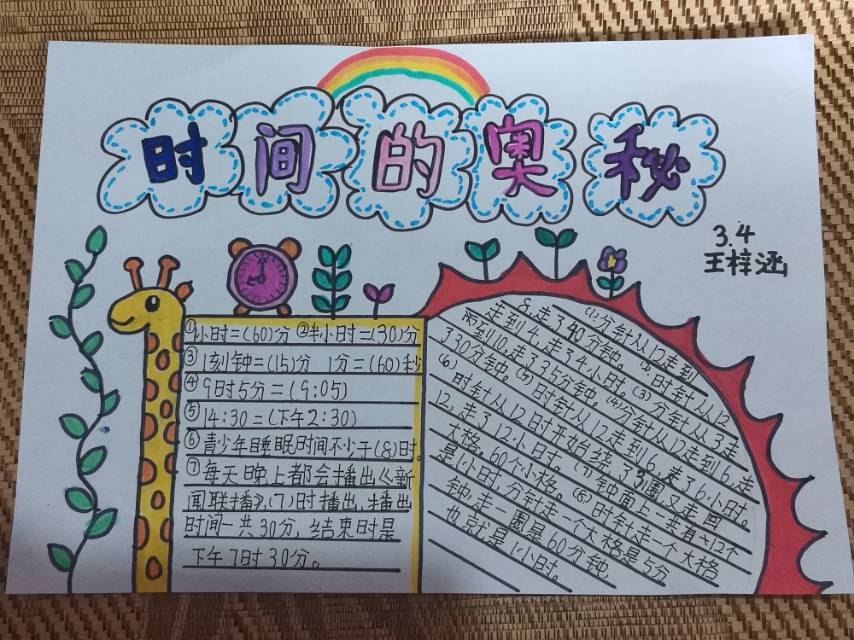 时间的奥秘
3.4
王梓涵
①1小时=(60)分 ②半小时=(30)分
③1刻钟=(15)分 1分=(60)秒
④9时5分=(9:05)
⑤14:30=(下午2:30)
⑥青少年睡眠时间不少于(8)时。
⑦每天晚上都会播出《新
闻联播》,(7)时播出,播出
时间一共30分,结束时是
下午7时30分。
(1)分针从12走到
8,走了40分钟。(2)时针从12
走到4,走了4小时。(3)分针从3走
到10,走了35分钟。(4)分针从12走到6,走
了30分钟。(5)时针从12走到6,走了6小时。
(6)时针从12时开始绕了圈又走回
12,走了12小时。(7)钟面上一共有12个
大格,60个小格。(8)时针走一个大格
是1小时,分针走一个大格是5分
钟,走一圈是60分钟,
也就是1小时。